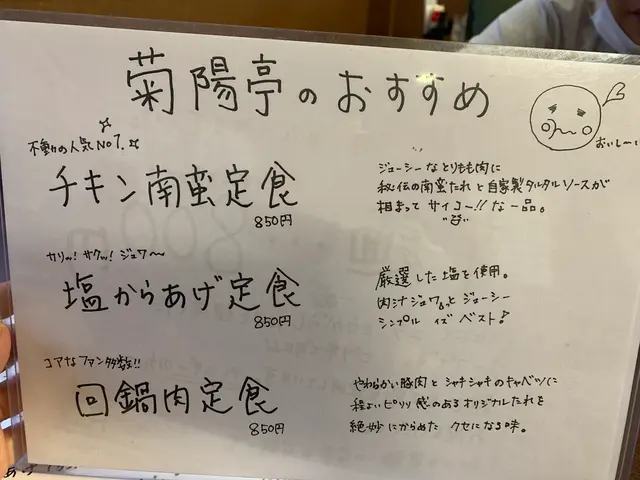 菊陽亭のおすすめ
おいしい
不動の人気No1.
チキン南蛮定食
850円
ジューシーなとりもも肉に
秘伝の南蛮たれと自家製タルタルソースが
相まってサイコー!!な一品。
カリッ! サクッ! ジュワ〜
塩からあげ定食
850円
厳選した塩を使用。
肉汁ジュワッとジューシー
シンプル イズ ベスト!
コアなファン多数!!
回鍋肉定食
850円
やわらかい豚肉とシャキシャキのキャベツに
程よいピリリ感のあるオリジナルたれを
絶妙にからめた クセになる味。